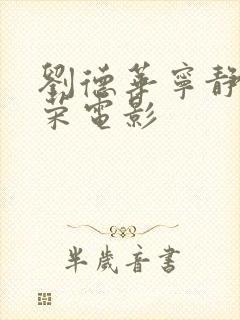 劉德華寧靜
宋電影
半歲音書